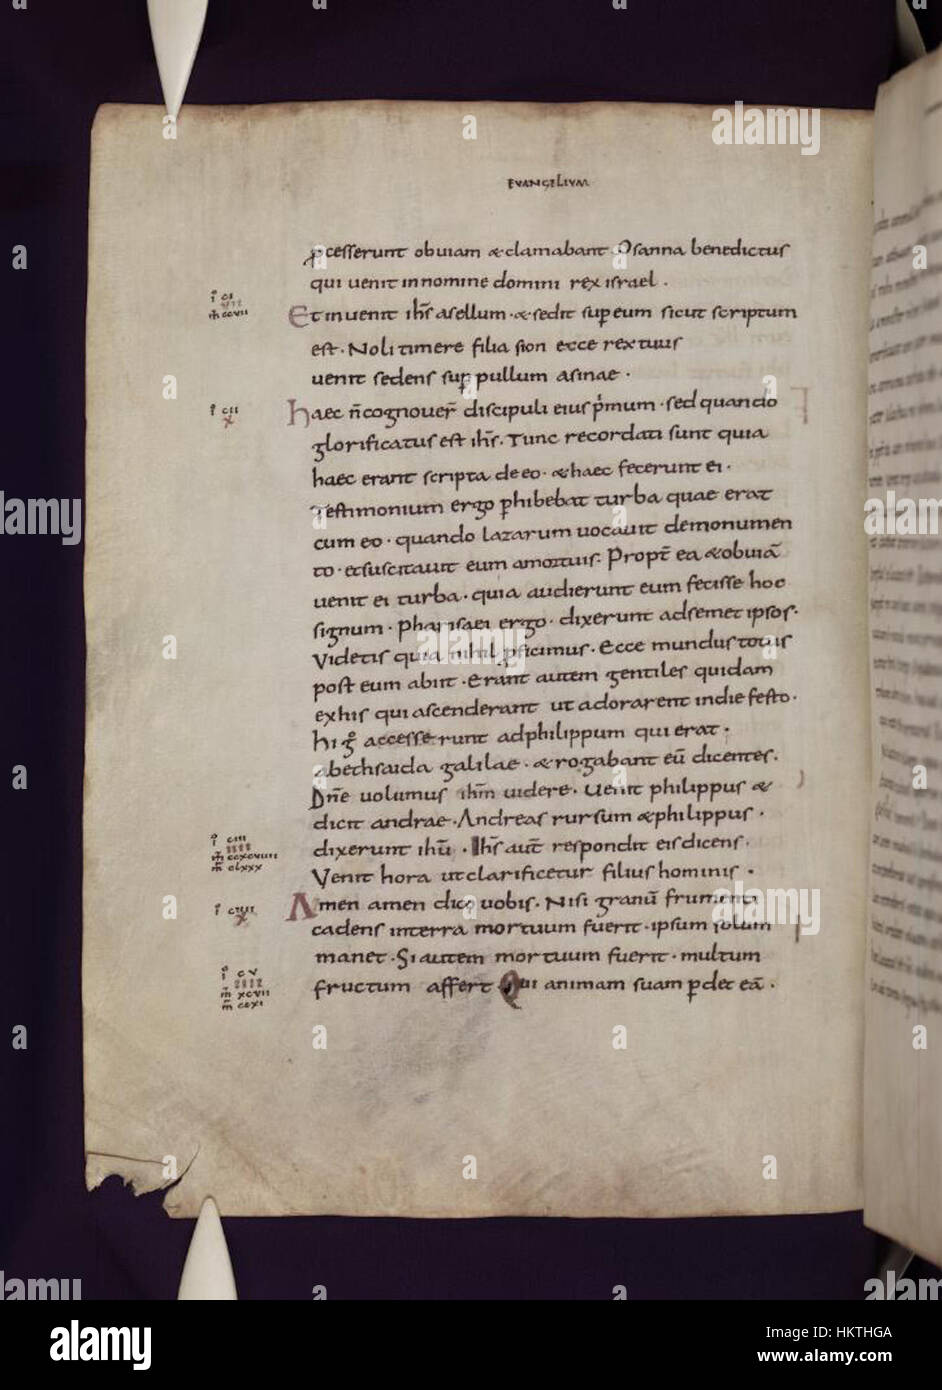 EVANGELIUM
pcesserunt obuiam & clamabant Osanna benedictus
qui uenit innomine domini rex israel .
i CI
m CCVII
Et inuenit ihs asellum · & sedit sup eum sicut scriptum
est · Noli timere filia sion ecce rex tuus
uenit sedens sup pullum asinae ·
i CII
X
haec n̄ cognouer̄ discipuli eius pͥmum · sed quando
glorificatus est ihs̄ . Tunc recordati sunt quia
haec erant scripta deeo · & haec fecerunt ei ·
Testimonium ergo phibebat turba quae erat
cum eo · quando lazarum uocauit demonumen
to · etsuscitauit eum amortuis . Propt̄ ea & obuiā
uenit ei turba · quia audierunt eum fecisse hoc
signum · Pharisaei ergo · dixerunt adsemet ipsos ·
Videtis quia nihil pficimus · Ecce mundus totus
post eum abiit · Erant autem gentiles quidam
exhis qui ascenderant ut adorarent indie festo ·
hi gͦ accesserunt adphilippum qui erat ·
abethsaida galilae · & rogabant eū dicentes .
Dn̄e uolumus ihm̄ uidere · Uenit philippus &
dicit andrae · Andreas rursum & philippus ·
dixerunt ihū · Ihs̄ aut̄ respondit eis dicens .
i CIII
m CCXCVIIII
m CLXXX
Venit hora ut clarificetur filius hominis ·
i CIIII
X
Amen amen dico uobis . Nisi granū frumenti
cadens interra mortuum fuerit · ipsum solum
manet · Si autem mortuum fuerit · multum
i CV
m XCVII
m CCXI
fructum affert Qui animam suam pdet eā ·
alamy
Image ID: HKTHGA
www.alamy.com